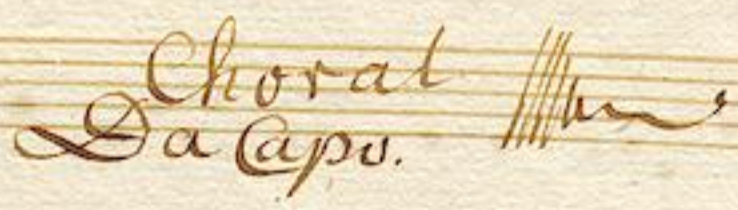 Choral
Da Capo.